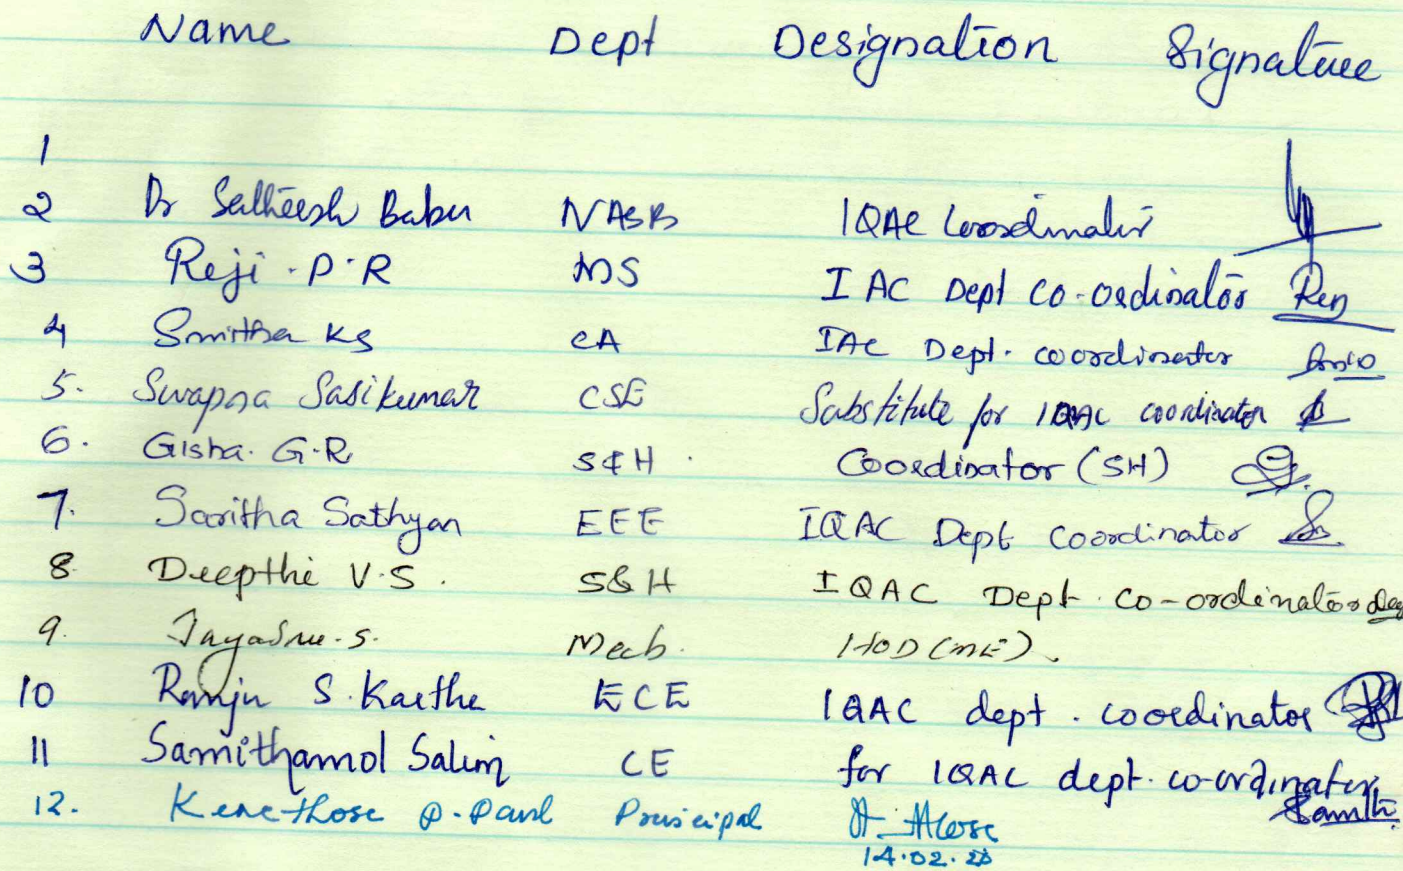 Name Dept Designation Signature
1
2 Dr Satheesh Babu NASB IQAC Coordinator
3 Reji . P . R DS IAC Dept co-ordinator Reji
4 Smitha KS CA IAC Dept. coordinator
5. Swapna Sasikumar CSE Substitute for IQAC coordinator
6. Gisha. G.R S&H . Coordinator (SH)
7. Saritha Sathyan EEE IQAC Dept Coordinator
8 Deepthi V.S. S&H IQAC Dept. co-ordinator
9. Jayasree. S. Mech. HOD (ME).
10 Ramju S. Kartha ECE IQAC dept. coordinator
11 Samithamol Salim CE for IQAC dept. co-ordinator
12. P. Paul Principal
14.02.